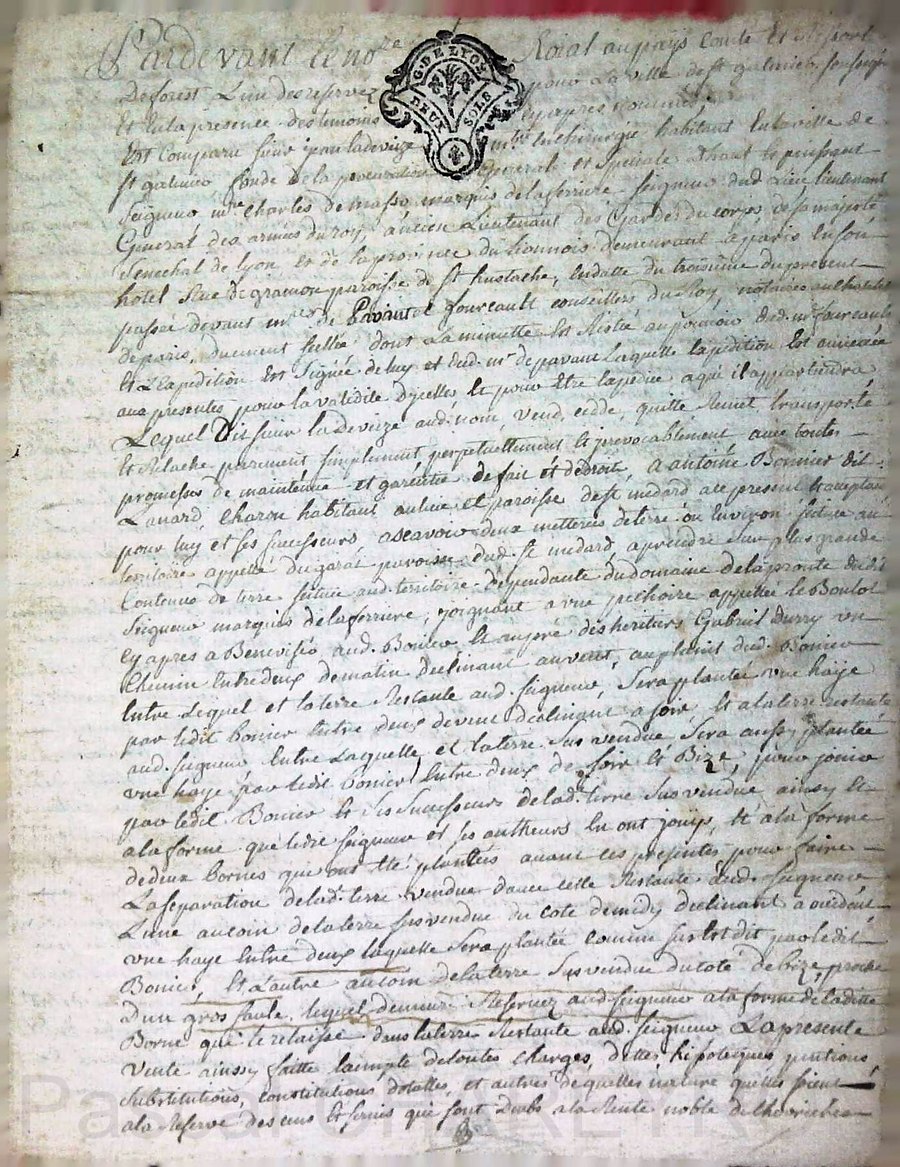 Pardevant le no.re Roial au pays Comté et Ressort
G. DE LYON
DEUX SOLS
De forest Lun des reservez pour la ville de st galmier soussigné
Et en la presence des temoins cy apres nommés
Est Comparu sieur jean ladeveze m.re en chirurgie habitant en la ville de
st galmier fondé de la procuration generale et speciale d'haut et puissant
Seigneur m.re Charles de masso marquis de la ferriere Seigneur dud. Lieu Lieutenant
General des armées du roy, ancien Lieutenant des Gardes du corps de sa majesté
Senechal de Lyon et de la province du lionnois demeurant à paris en son
hotel rue de gramon paroisse de st Eustache, en datte du troisieme du present
passée devant m.res de et fourcault conseillers du Roy, notaires au chatelet
de paris, duement scellée dont La minutte Est Restée au pouvoir dud. m.e fourcault
et L'expedition Est signée de luy et dud. m.e de pavant Laquelle expedition Est annexée
aux presentes pour la validité d'ycelles et pour Etre expediée a qui il appartiendra
Lequel dit sieur ladeveze aud. nom, vend, cedde, quitte Remet transporte
Et Relache purement simplement perpetuellement et yrevocablement avec toutes
promesses de maintenue et garentie de fait et de droit, à antoine Bonnier dit
Lanard Charon habitant au lieu et paroisse de st medard a ce present et acceptant
pour luy et ses successeurs ascavoir deux metterées de terre ou Environ scituée au
territoire appellé du garat paroisse dud. st medard, a prendre sur plus grande
Contenue de terre scituée aud. territoire, dependante du domaine de la dudit
Seigneur marquis de la ferriere, joignant a une appellée le Boulot
cy apres a Benevisée aud. Bonier Et aupré des heritiers Gabriel Durry un
Chemin Entre deux de matin declinant au vent, au plain dud. Bonier
Entre Lequel et la terre Restante aud. seigneur, sera plantée une haye
par ledit bonier Entre deux de vent declinant a soir, Et a la terre restante
aud. seigneur Entre Laquelle et la terre sus vendue sera aussy plantée
une haye par ledit Bonier, Entre deux de soir et Bize, pour jouir
par ledit Bonier Et ses successeurs de lad. terre sus vendue ainsy Et
a la forme que ledit seigneur et ses autheurs En ont jouys, Et a la forme
de deux bornes qui ont Eté plantées avant ces presentes pour faire
La separation de lad. terre vendue d'avec celle Restante aud. seigneur
L'une au coin de la terre sus vendue du coté de midy declinant a occident
une haye Entre deux laquelle sera plantée comme sus Est dit par ledit
Bonier, Et à l'autre au coin de la terre sus vendue du coté de bize, proche
d'un gros saule, lequel demeure Reservez aud. seigneur a la forme de laditte
Borne qui le relaisse dans la terre Restante aud. seigneur La presente
Vente ainsy faitte Exempte de toutes charges, dettes, hipoteques
substitutions, constitutions dotalles, et autres de quelles nature qu'elles soient
a la Reserve des cens Et servis qui sont dubs a la Rente noble de
Pascal CHAREYRON